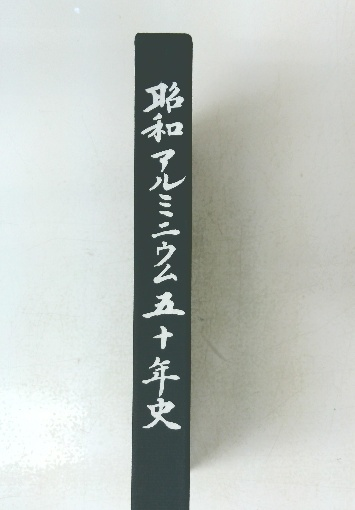 昭和アルミニウム五十年史